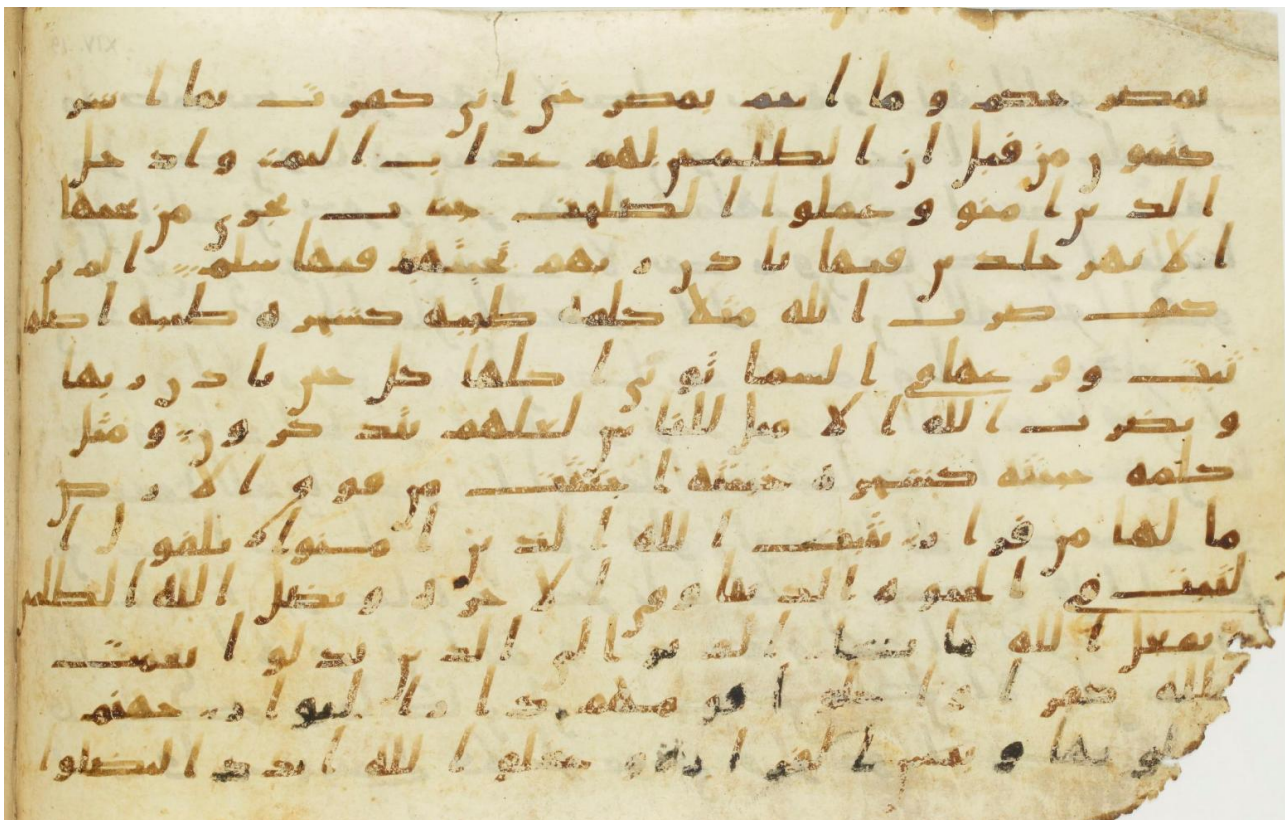 بمصرخكم وما انتم بمصرخي اني كفرت بما اشر
كتمون من قبل ان الظلمين لهم عذاب اليم وادخل
الذين امنو وعملوا الصلحت جنات تجري من تحتها
الانهر خلدين فيها باذن ربهم تحيتهم فيها سلم الم تر
كيف ضرب الله مثلا كلمة طيبة كشجرة طيبة اصلها
ثبت وفرعها في السما توتي اكلها كل حين باذن ربها
ويضرب الله الامثل للناس لعلهم يتذكرون ومثل
كلمة خبيثة كشجرة خبيثة اجتثت من فوق الارض
ما لها من قرار يثبت الله الذين امنوا بالقول ا
لثبت في الحيوة الدنيا وفي الاخرة ويضل الله الظلمين
ويفعل الله ما يشا الم تر الى الذين بدلوا نعمت
الله كفرا واحلوا قومهم دار البوار جهنم
يصلونها وبيس القرار وجعلوا لله اندد ا ليضلوا